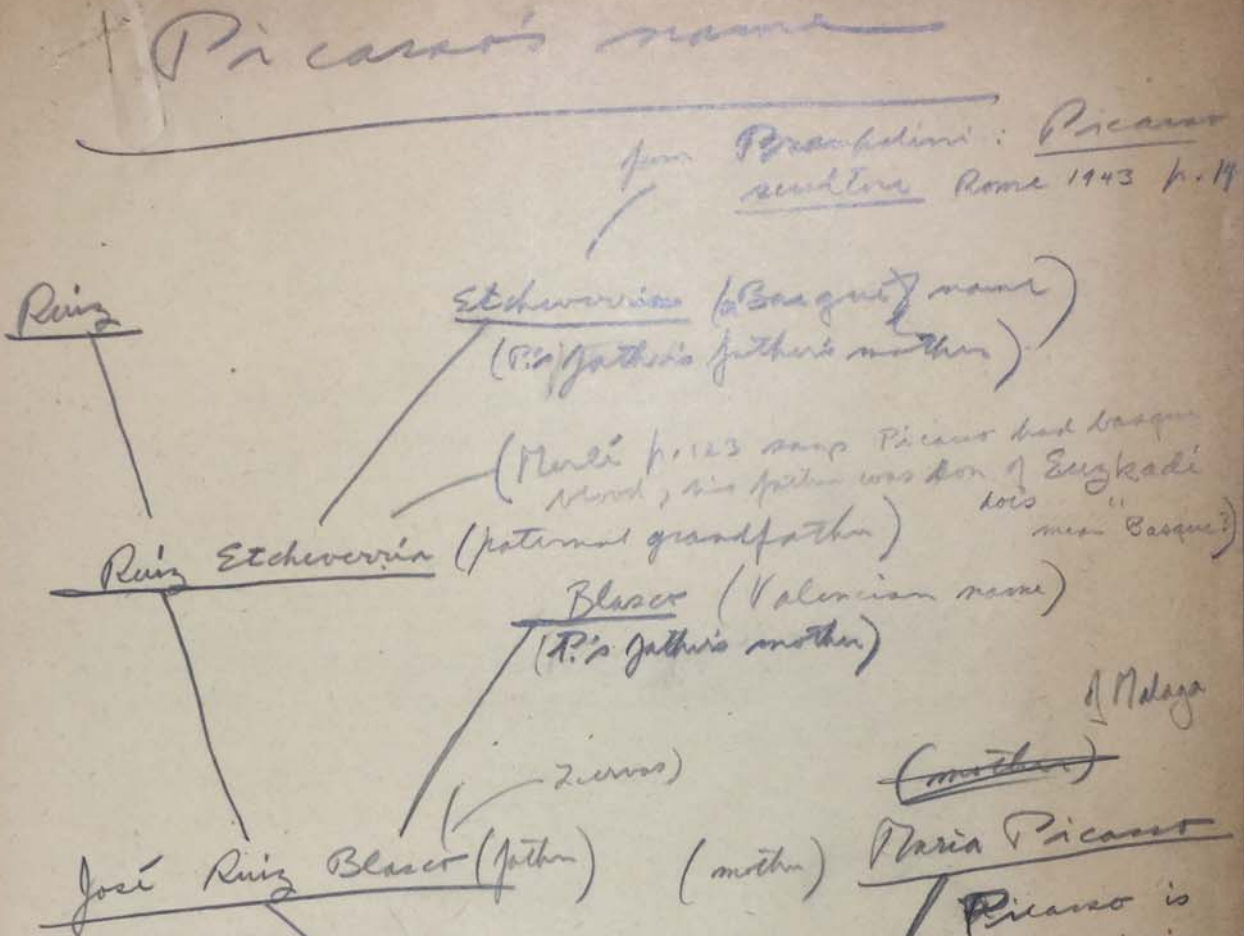 Picasso's name
from Prampolini: Picasso
scultore Rome 1943 p. 19
Ruiz
Etcheverria (a Basque? name)
(P.'s father's father's mother)
(Merli p. 123 says Picasso had basque
blood, his father was son of Euzkadi
does
mean "Basque?)
Ruiz Etcheverría (paternal grandfather)
Blasco (Valencian name)
(P.'s father's mother)
of Malaga
Zervos)
(mother)
José Ruiz Blasco (father) (mother) Maria Picasso
Picasso is